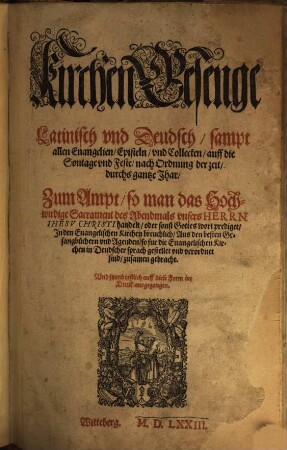 Kirchen Gesenge
Latinisch vnd Deudsch / sampt
allen Euangelien / Episteln / vnd Collecten / auff die
Sontage vnd Feste / nach Ordnung der zeit /
durchs gantze Jhar /
Zum Ampt / so man das Hoch-
wirdige Sacrament des Abendmals vnsers HERRN
IHESV CHRISTI handelt / oder sonst Gottes wort prediget /
In den Euangelischen Kirchen breuchlich / Aus den besten Ge-
sangbüchern vnd Agenden / so für die Euangelischen Kir-
chen in Deudscher sprach gestellet vnd verordnet
sind / zusamen gebracht.
Vnd itzund erstlich auff diese Form im
Druck ausgegangen.
Witteberg. M. D. LXXIII.